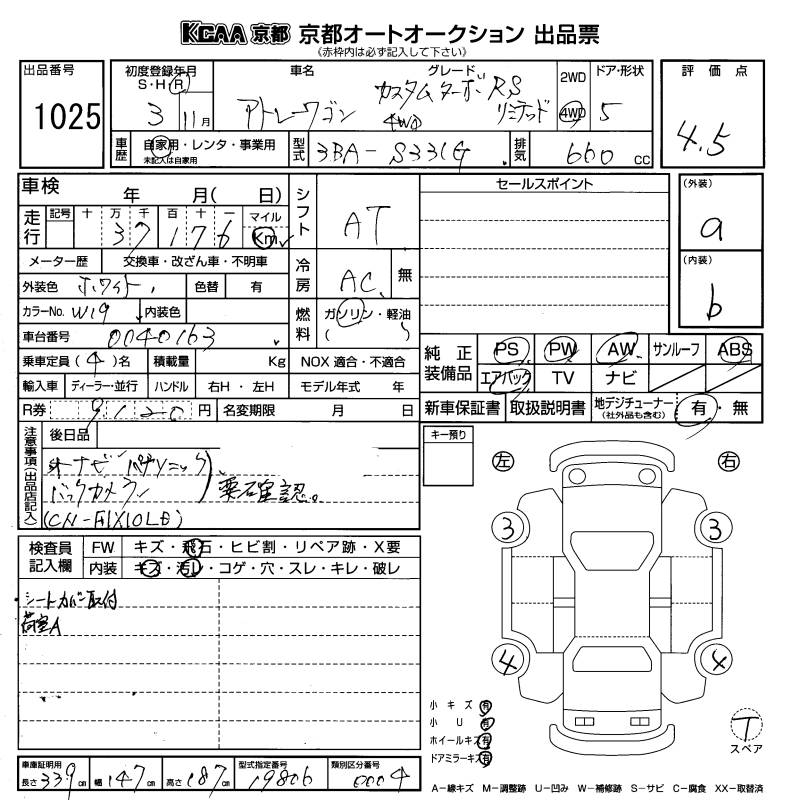 KCAA 京都 京都オートオークション 出品票
(赤枠内は必ず記入して下さい)
出品番号 1025
初度登録年月 S・H・R 3 11月
車名 アトレーワゴン
グレード カスタムターボRS リミテッド 4WD
2WD 4WD
ドア・形状 5
評価点 4.5
車歴 自家用・レンタ・事業用 未記入は自家用
型式 3BA-S331G
排気 660 CC
車検 年 月( 日)
走行 記号 十 万 千 百 十 一 マイル Km
37176
シフト AT
メーター歴 交換車・改ざん車・不明車
冷房 AC 無
外装色 ホワイト 色替 有
カラーNo. W19 内装色
燃料 ガソリン・軽油 ( )
車台番号 0040163
乗車定員(4)名 積載量 Kg NOX 適合・不適合
輸入車 ディーラー・並行 ハンドル 右H・左H モデル年式 年
R券 9120 円 名変期限 月 日
セールスポイント
(外装) a
(内装) b
純正装備品 PS PW AW サンルーフ ABS
エアバッグ TV ナビ
新車保証書 取扱説明書 地デジチューナー (社外品も含む) 有・無
注意事項(出品店記入)
後日品
ナビ パナソニック
バックカメラ
(CN-F1X10LD)
要石確認。
キー預り
左 右
3 3
4 4
検査員記入欄
FW キズ・飛石・ヒビ割・リペア跡・X要
内装 キズ・汚レ・コゲ・穴・スレ・キレ・破レ
シートカバー取付
荷室A
小キズ 有
小U 有
ホイールキズ 有
ドアミラーキズ 有
T
スペア
車庫証明用 長さ 339 cm 幅 147 cm 高さ 187 cm
型式指定番号 19806
類別区分番号 0004
A-線キズ M-調整跡 U-凹み W-補修跡 S-サビ C-腐食 XX-取替済